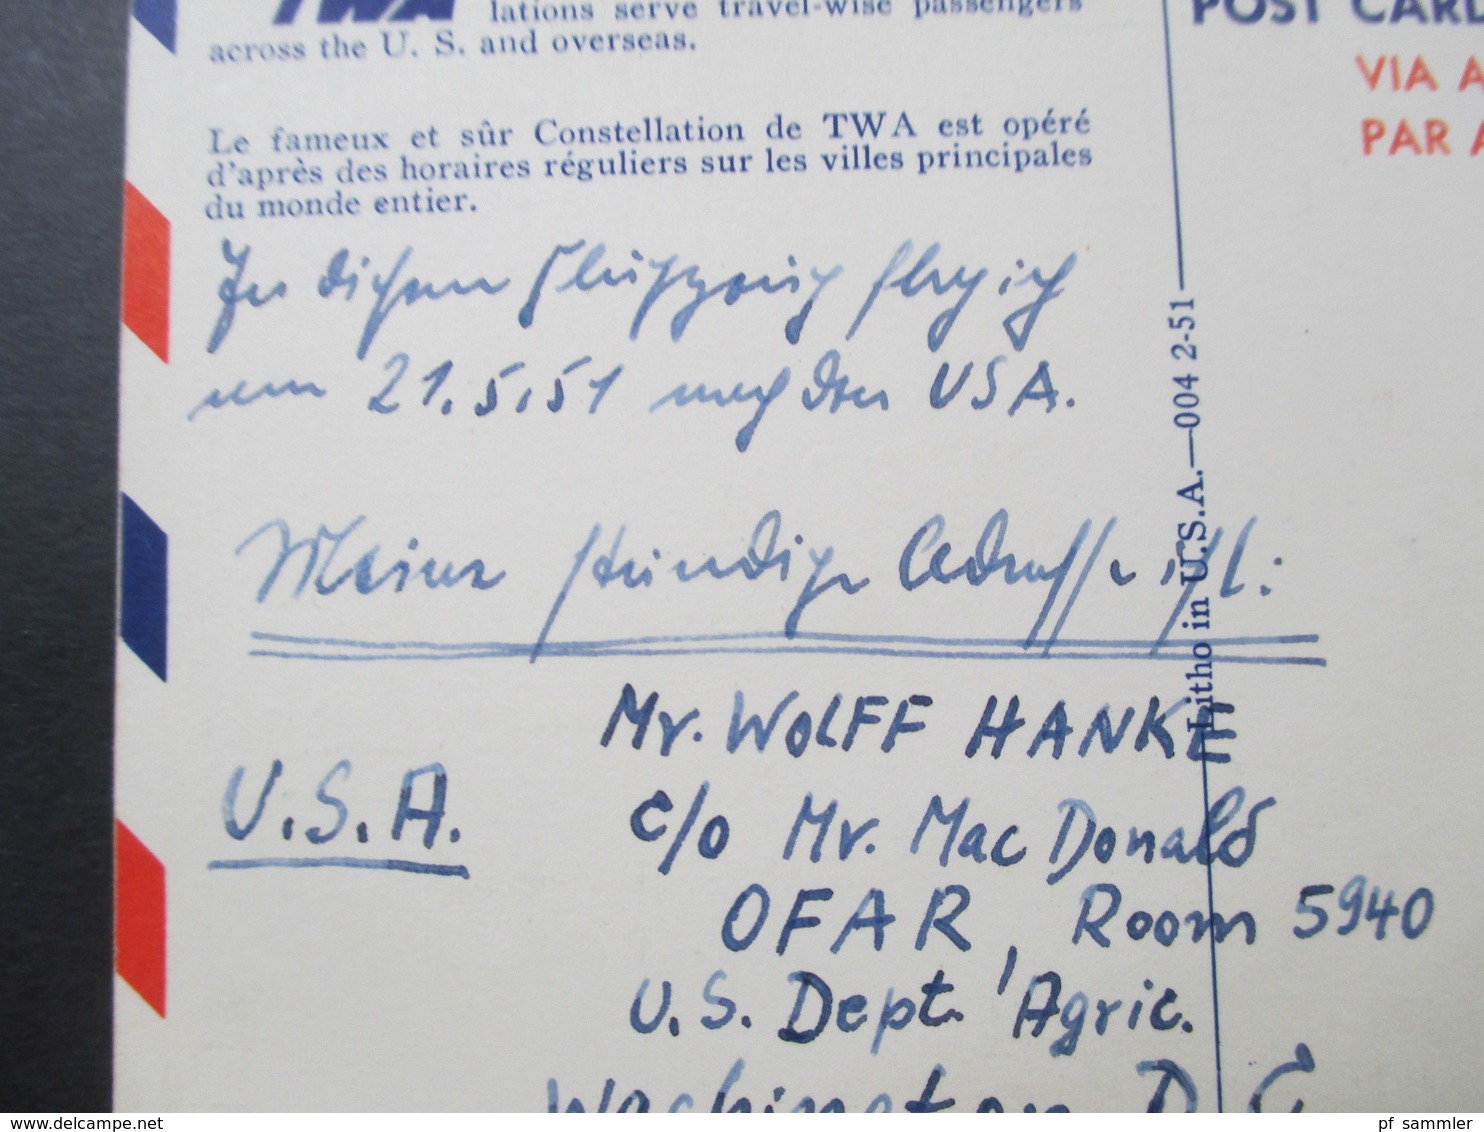 TWA lations serve travel-wise passengers
across the U. S. and overseas.
Le fameux et sûr Constellation de TWA est opéré
d'après des horaires réguliers sur les villes principales
du monde entier.
In diesem Flugzeug flog ich
am 21.5.51 nach den USA.
Meine ständige Adresse ist:
Mr. WOLFF HANKE
U.S.A.
c/o Mr. Mac Donald
OFAR, Room 5940
U.S. Dept. Agric.
Washington D.C.
POST CARD
VIA A
PAR A
Litho in U.S.A.—004 2-51
www.delcampe.net
pf_sammler